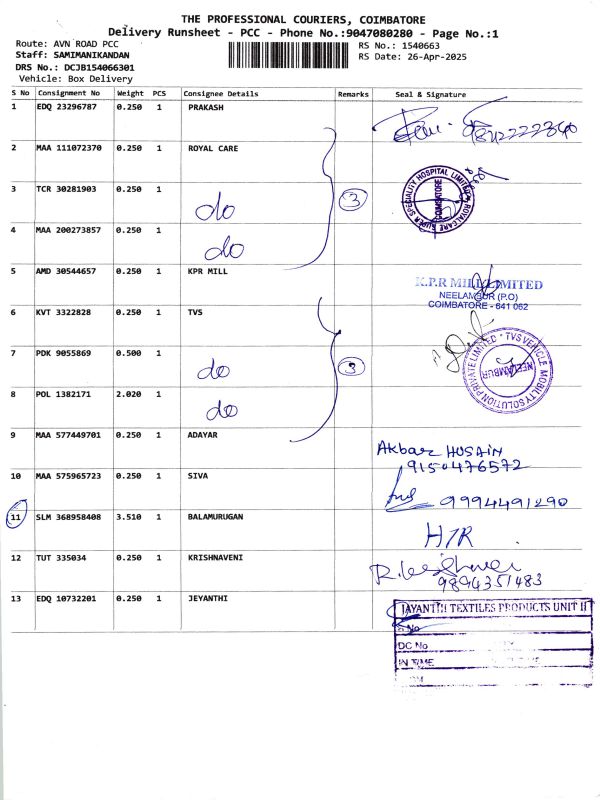 THE PROFESSIONAL COURIERS, COIMBATORE
Delivery Runsheet - PCC - Phone No.:9047080280 - Page No.:1
Route: AVN ROAD PCC
RS No.: 1540663
Staff: SAMIMANIKANDAN
RS Date: 26-Apr-2025
DRS No.: DCJB154066301
Vehicle: Box Delivery
S No Consignment No Weight PCS Consignee Details Remarks Seal & Signature
1 EDQ 23296787 0.250 1 PRAKASH
2 MAA 111072370 0.250 1 ROYAL CARE
3 TCR 30281903 0.250 1 do 3
ROYALCARE SUPER SPECIALITY HOSPITAL LIMITED COIMBATORE
4 MAA 200273857 0.250 1 do
5 AMD 30544657 0.250 1 KPR MILL
K.P.R MILL LIMITED
NEELAMBUR (P.O)
COIMBATORE - 641 062
6 KVT 3322828 0.250 1 TVS
7 PDK 9055869 0.500 1 do 3
TVS VEHICLE MOBILITY SOLUTION PRIVATE LIMITED NEELAMBUR
8 POL 1382171 2.020 1 do
9 MAA 577449701 0.250 1 ADAYAR
Akbar HUSAIN
9150476572
10 MAA 575965723 0.250 1 SIVA
9994491290
11 SLM 368958408 3.510 1 BALAMURUGAN
H/R
12 TUT 335034 0.250 1 KRISHNAVENI
9894351483
13 EDQ 10732201 0.250 1 JEYANTHI
JAYANTHI TEXTILES PRODUCTS UNIT II
S No
DC No
IN TIME